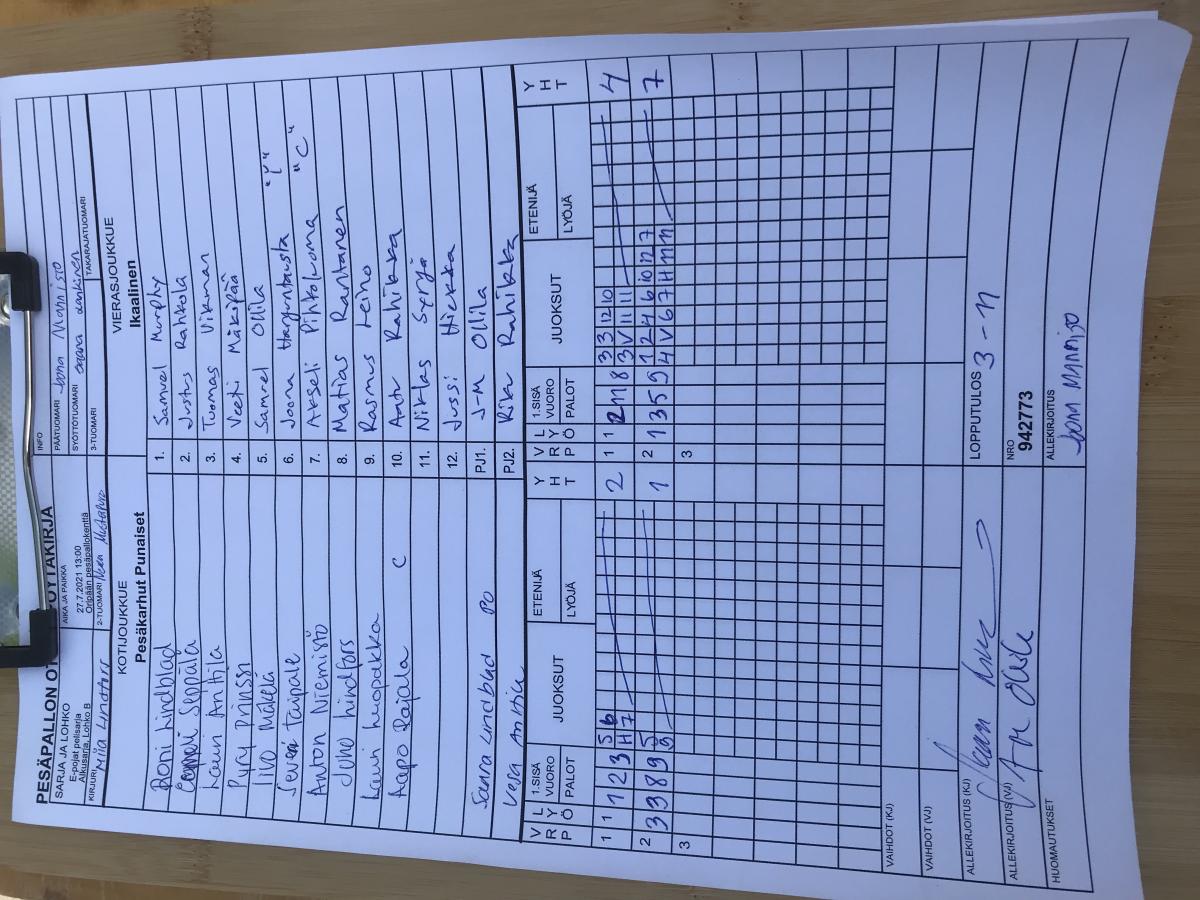 PESÄPALLON OT PÖYTÄKIRJA
SARJA JA LOHKO
E-pojat pelisarja
Alkusarja, Lohko B
AIKA JA PAIKKA
27.7.2021 13:00
Oripään pesäpallokenttä
INFO
PÄÄTUOMARI Joona Mannisto
SYÖTTÖTUOMARI
TAKARAJATUOMARI
KIRJURI Miia Lindfors
2-TUOMARI
3-TUOMARI
KOTIJOUKKUE
Pesäkarhut Punaiset
VIERASJOUKKUE
Ikaalinen
Roni Lindblad 1. Samuel Murphy
Seppälä 2. Justus Rahkola
Lauri Anttila 3. Tuomas Vikman
Pyry Prinssi 4. Veeti Mäkipää
Iivo Mäkelä 5. Samuel Ollila
Severi Taipale 6. Joona Hangantausta "L"
Anton Niemistö 7. Akseli Pihtoluoma "C"
Juho Lindfors 8. Matias Rantanen
Lauri Huopakka 9. Rasmus Leino
Aapo Raijala C 10. Aatu Rahikka
11. Niklas Syrjä
12. Jussi Hiekka
Sanna Lindblad PO PJ1. J-M Ollila
Vesa Anttila PJ2. Riku Rahikka
V R P L Y Ö 1.SISÄ VUORO PALOT JUOKSUT ETENIJÄ LYÖJÄ Y H T V R P L Y Ö 1.SISÄ VUORO PALOT JUOKSUT ETENIJÄ LYÖJÄ Y H T
1 1 1 2 3 5 6 2 1 1 2 11 8 3 3 12 10 4
H 7 3 V 11 11
2 3 3 8 9 5 1 2 1 3 5 9 1 2 4 6 10 12 7 7
9 4 V 6 7 H 11 11
3 3
VAIHDOT (KJ)
VAIHDOT (VJ)
ALLEKIRJOITUS (KJ)
LOPPUTULOS 3 - 11
ALLEKIRJOITUS (VJ)
NRO
942773
HUOMAUTUKSET
ALLEKIRJOITUS